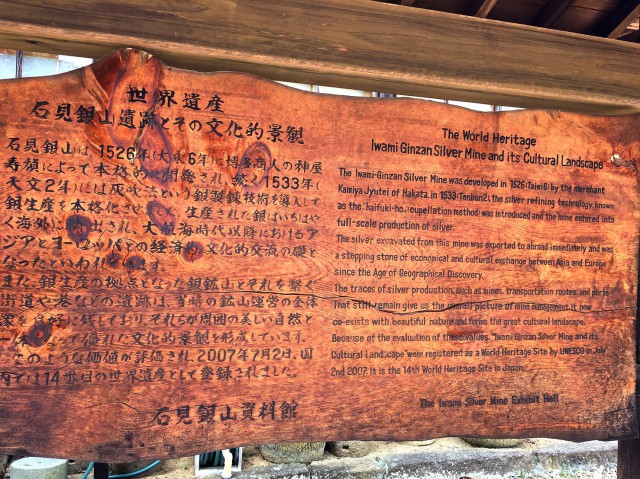 世界遺産
石見銀山遺跡とその文化的景観
石見銀山は、1526年(大永6年)に博多商人の神屋
寿禎によって本格的に開発され、続く1533年(
天文2年)には灰吹法という銀製錬技術を導入して
銀生産を本格化させました。生産された銀はいちはや
く海外に輸出され、大航海時代以降におけるア
ジアとヨーロッパとの経済的・文化的交流の礎と
なったといわれています。
また、銀生産の拠点となった銀鉱山とそれを繋ぐ
街道や港などの遺跡は、当時の鉱山運営の全体
像を良好に残しており、それらが周囲の美しい自然と
一体となって優れた文化的景観を形成しています。
このような価値が評価され、2007年7月2日、国
内では14番目の世界遺産として登録されました。
石見銀山資料館
The World Heritage
Iwami Ginzan Silver Mine and its Cultural Landscape
The Iwami-Ginzan Silver Mine was developed in 1526(Taiei6) by the merchant
Kamiya Jyutei of Hakata. in 1533(Tenbun2), the silver refining technology known
as the "haifuki-ho."(cupellation method) was introduced and the mine entered into
full-scale production of silver.
The silver excavated from this mine was exported to abroad immediately and was
a stepping stone of economical and cultural exchange between Asia and Europe
since the Age of Geographical Discovery.
The traces of silver production, such as mines, transportation routes, and ports
That still remain give us the overall picture of mine management. It now
co-exists with beautiful nature and forms the great cultural landscape.
Because of the evaluation of these values, "Iwami Ginzan Silver Mine and its
Cultural Landscape" were registered as a World Heritage Site by UNESCO in July
2nd 2007. It is the 14th World Heritage Site in Japan.
The Iwami Silver Mine Exhibit Hall